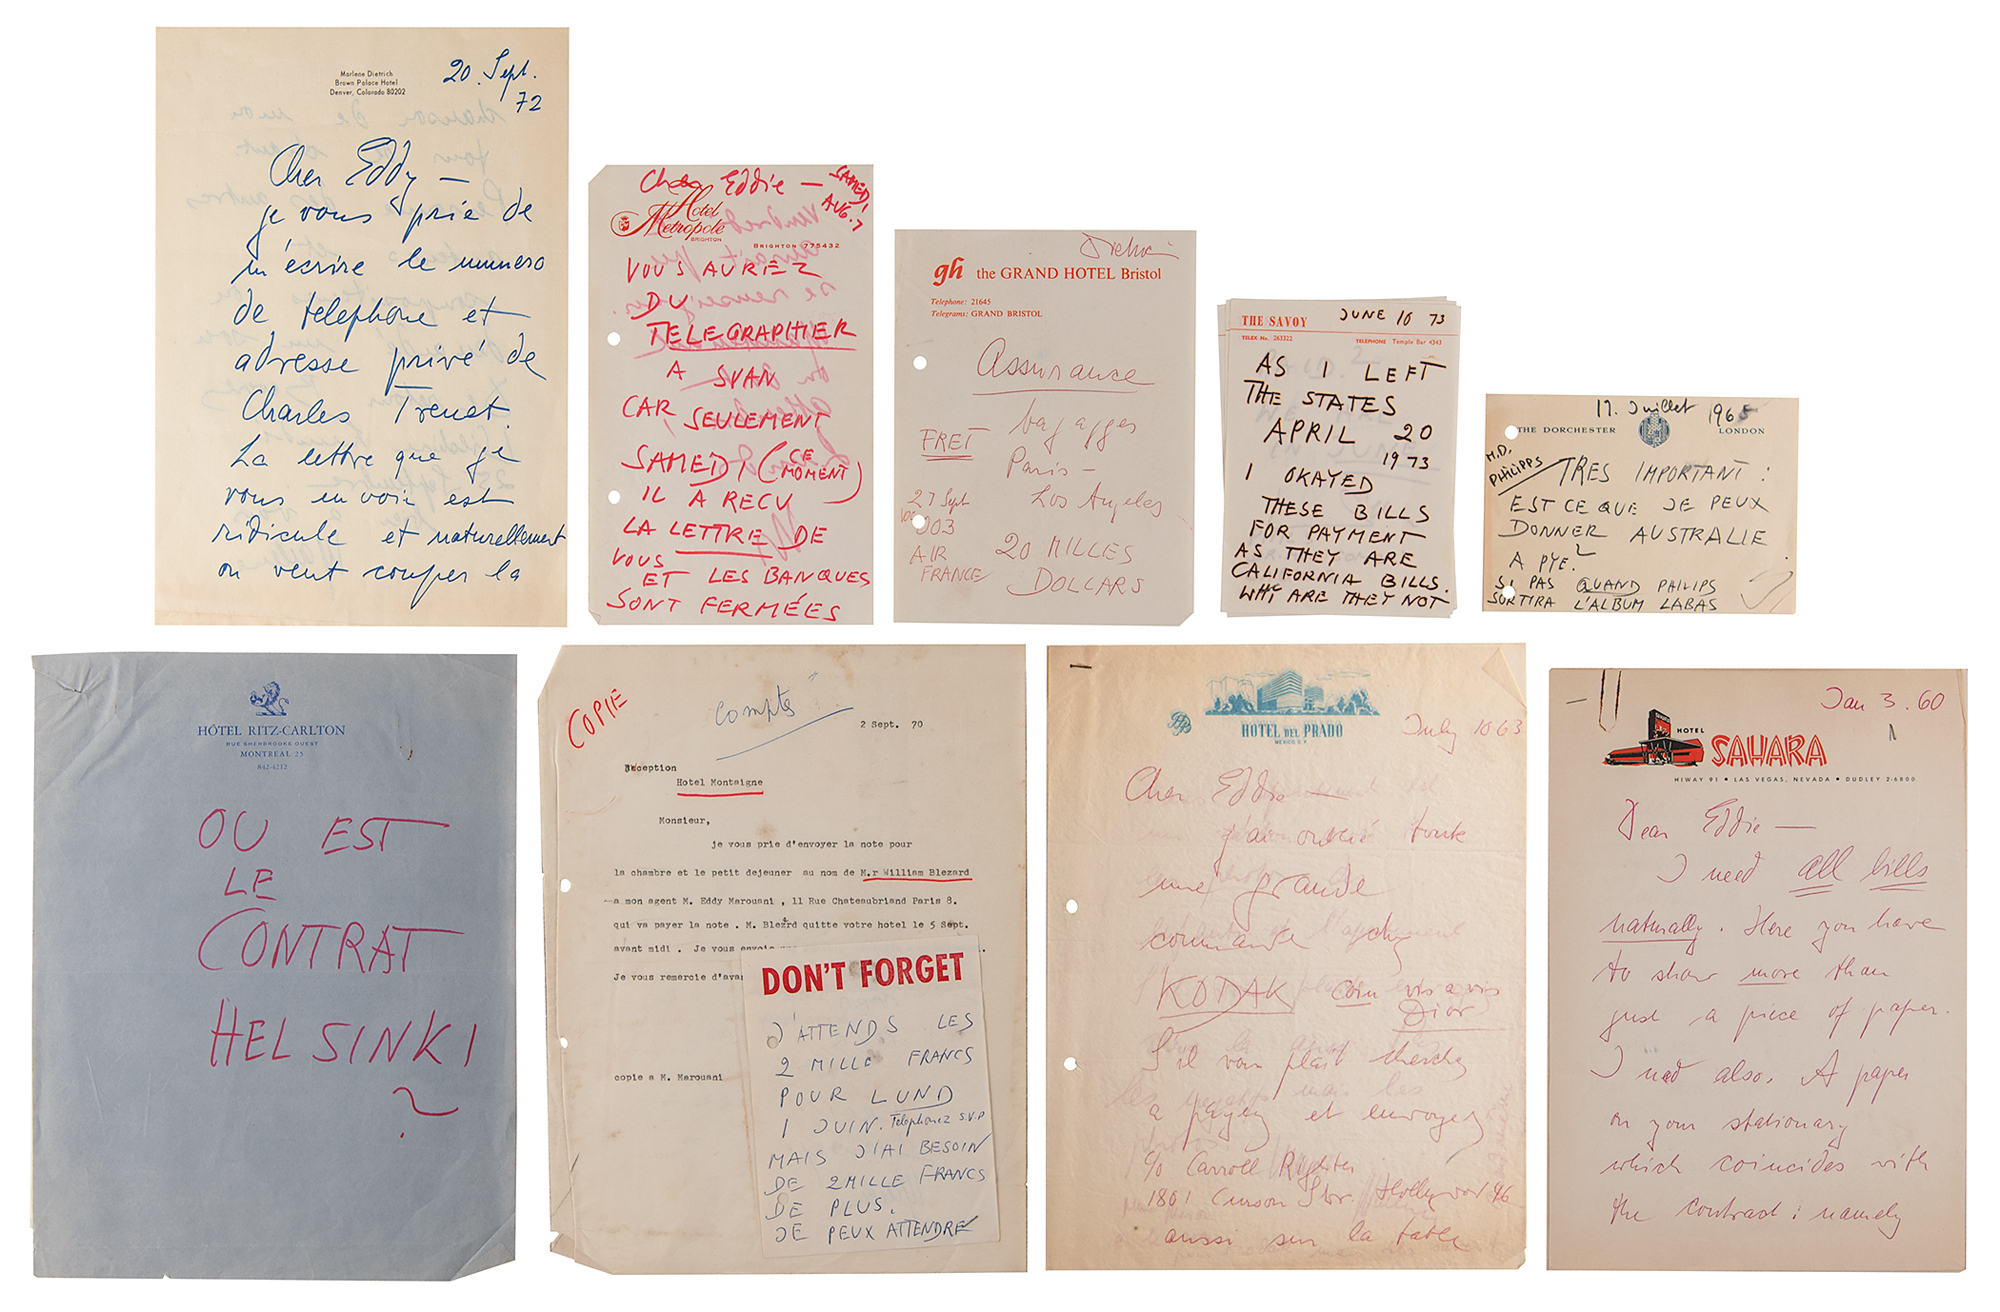 Marlene Dietrich
Brown Palace Hotel
Denver, Colorado 80202
20. Sept.
72
Cher Eddy —
je vous prie de
m'écrire le numero
de telephone et
adresse privé de
Charles Trenet.
La lettre que je
vous envoie est
ridicule et naturellement
on veut couper la
Cher Eddie —
SAMEDI
AUG. 7
Hotel
Metropole
BRIGHTON
BRIGHTON 775432
VOUS AURIEZ
DU
TELEGRAPHIER
A SVAN
CAR, SEULEMENT
SAMEDI (CE
MOMENT)
IL A RECU
LA LETTRE DE
VOUS
ET LES BANQUES
SONT FERMÉES
gh the GRAND HOTEL Bristol
Telephone: 21645
Telegrams: GRAND BRISTOL
Assurance
bagages
FRET
Paris —
Los Angeles
27 Sept
003
AIR
FRANCE
20 MILLES
DOLLARS
THE SAVOY
JUNE 10 73
TELEX No. 263322
TELEPHONE Temple Bar 4343
AS I LEFT
THE STATES
APRIL 20
1973
I OKAYED
THESE BILLS
FOR PAYMENT
AS THEY ARE
CALIFORNIA BILLS.
WHY ARE THEY NOT
17. Juillet 1965
THE DORCHESTER LONDON
M.D.
PHILIPPS
TRES IMPORTANT:
EST CE QUE JE PEUX
DONNER AUSTRALIE
A PYE?
SI PAS QUAND PHILIPS
SORTIRA L'ALBUM LABAS
HÔTEL RITZ-CARLTON
RUE SHERBROOKE OUEST
MONTREAL 25
842-4212
OU EST
LE
CONTRAT
HELSINKI
?
COPIE
Compts
2 Sept. 70
Reception
Hotel Montaigne
Monsieur,
je vous prie d'envoyer la note pour
la chambre et le petit dejeuner au nom de M.r William Blezard
a mon agent M. Eddy Marouani, 11 Rue Chateaubriand Paris 8.
qui va payer la note. M. Blezard quitte votre hotel le 5 Sept.
avant midi. Je vous envoie
Je vous remercie d'avan
copie a M. Marouani
DON'T FORGET
J'ATTENDS LES
2 MILLE FRANCS
POUR LUND
1 JUIN. Telephonez S.V.P
MAIS J'AI BESOIN
DE 2 MILLE FRANCS
DE PLUS.
JE PEUX ATTENDRE
HOTEL DEL PRADO
MEXICO D.F.
July 10 63
Cher Eddie —
j'ai toute
une grande
commande chez
KODAK coin vis a vis
Dior
S'il vous plait cherchez
a payer et envoyez
c/o Carroll Righter
1801 Curson Str. Hollywood 46
aussi sur la table
Jan 3. 60
HOTEL SAHARA
HIWAY 91 • LAS VEGAS, NEVADA • DUDLEY 2-6800
Dear Eddie —
I need all bills
naturally. Here you have
to show more than
just a piece of paper.
I need also. A paper
on your stationary
which coincides with
the contract: namely